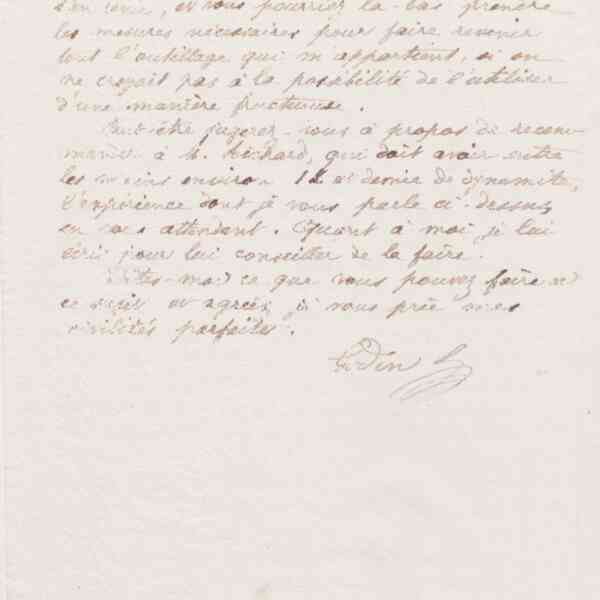 et vous pourriez là-bas prendre
les mesures nécessaires pour faire revenir
tout l'outillage qui m'appartient, si on
ne croyait pas à la possibilité de l'utiliser
d'une manière fructueuse.
Peut-être jugerez-vous à propos de recom-
mander à M. Richard, qui doit avoir entre
les mains environ 12 et demie de dynamite,
l'expérience dont je vous parle ci-dessus
en vous attendant. Quant à moi, je lui
écris pour lui conseiller de la faire.
Dites-moi ce que vous pouvez faire à
ce sujet et agréez, je vous prie mes
civilités parfaites.
Godin